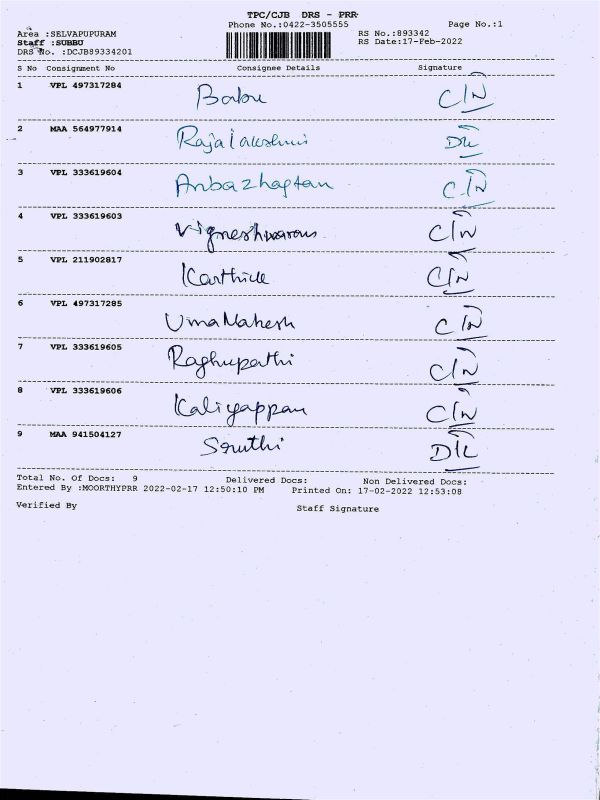 TPC/CJB DRS - PRR
Phone No.:0422-3505555 Page No.:1
Area :SELVAPUPURAM RS No.:893342
Staff :SUBBU RS Date:17-Feb-2022
DRS No. :DCJB89334201
S No Consignment No Consignee Details Signature
1 VPL 497317284 Babu C/N
2 MAA 564977914 Rajalakshmi
3 VPL 333619604 Anbazhagan C/N
4 VPL 333619603 Vigneshwaran C/N
5 VPL 211902817 Karthick C/N
6 VPL 497317285 Uma Mahesh C/N
7 VPL 333619605 Raghupathi C/N
8 VPL 333619606 Kaliyappan C/N
9 MAA 941504127 Sruthi
Total No. Of Docs: 9 Delivered Docs: Non Delivered Docs:
Entered By :MOORTHYPRR 2022-02-17 12:50:10 PM Printed On: 17-02-2022 12:53:08
Verified By Staff Signature